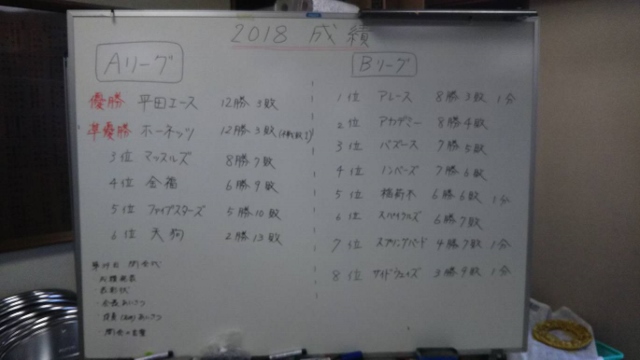 2018 成績
Aリーグ
優勝 平田エース 12勝 3敗
準優勝 ホーネッツ 12勝 3敗
3位 マッスルズ 8勝 7敗
4位 会福 6勝 9敗
5位 ファイブスターズ 5勝 10敗
6位 天狗 2勝 13敗
Bリーグ
1位 アレース 8勝 3敗 1分
2位 アカデミー 8勝 4敗
3位 バズース 7勝 5敗
4位 ノンベーズ 7勝 6敗
5位 稲荷木 6勝 6敗 1分
6位 スパイクルズ 6勝 7敗
7位 スプリングバード 4勝 7敗 1分
8位 サイドウェイズ 3勝 9敗 1分
・成績発表
・表彰状
・会長あいさつ